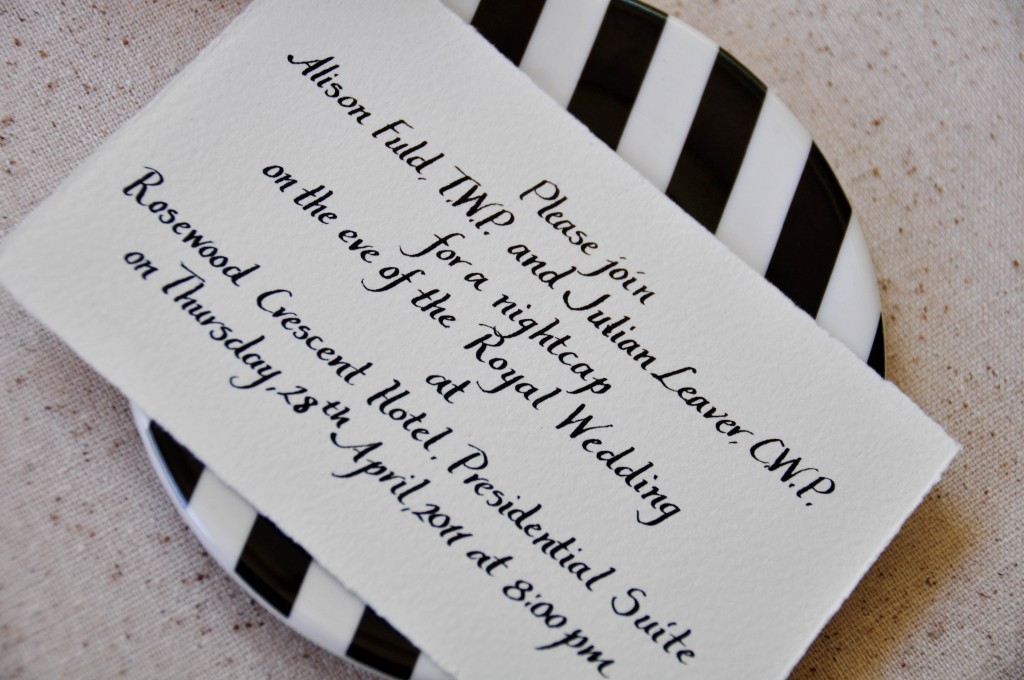 Please join
Alison Fuld, T.W.P. and Julian Leaver, C.W.P.
for a nightcap
on the eve of the Royal Wedding
at
Rosewood Crescent Hotel, Presidential Suite
on Thursday, 28th April, 2011 at 8:00 pm